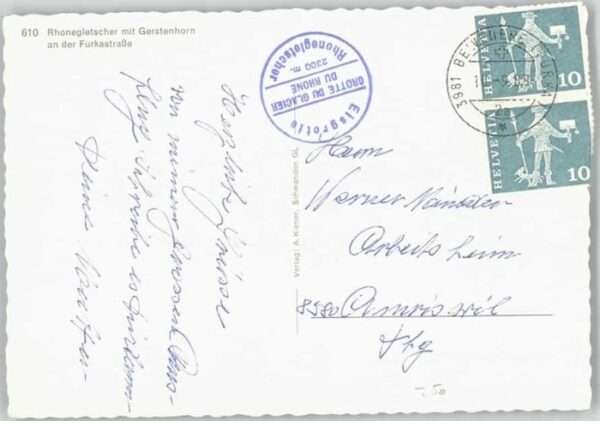 610 Rhonegletscher mit Gerstenhorn
an der Furkastraße
Eisgrotte
Rhonegletscher
2300 m.
GROTTE DU GLACIER
DU RHONE
HELVETIA
10
HELVETIA
10
3981
Verlag: A. Kiener, Schwanden GL
Herzliche Grüsse
von meiner grossen
Schreibe es
Deine
Herrn
Werner
Arbeitsheim
8580 Amriswil
Thg